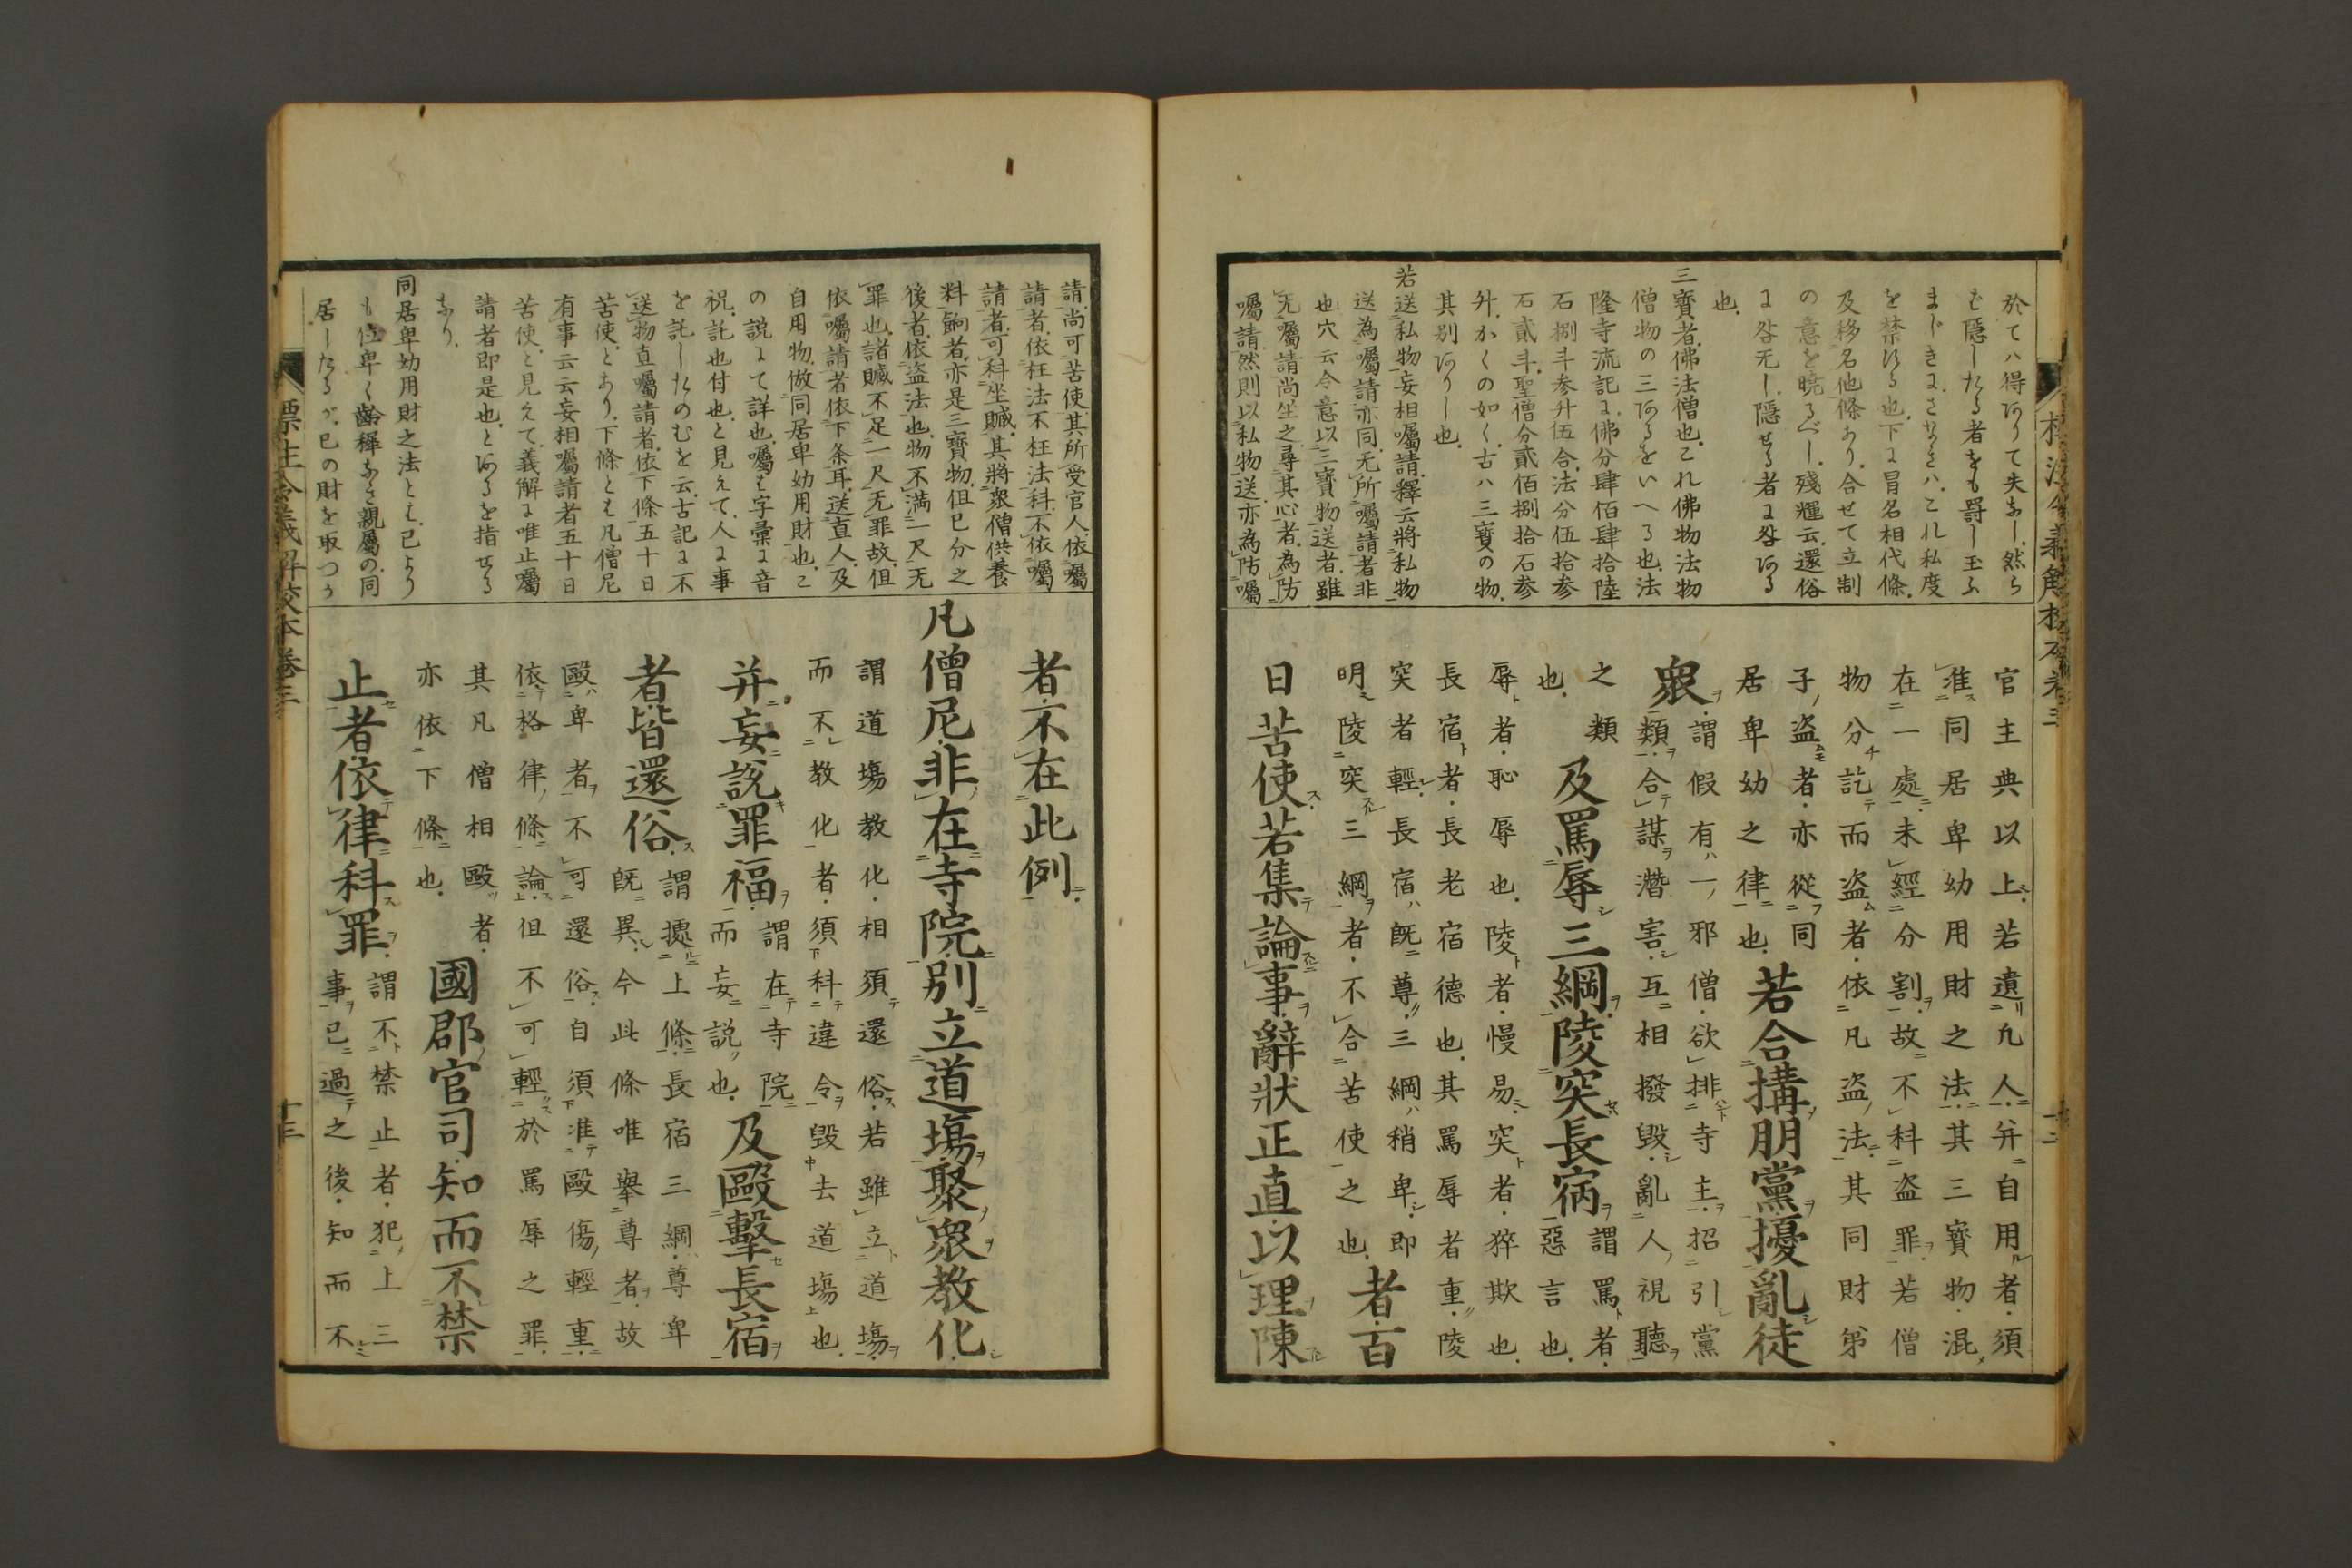 於てハ得ありて失なし然ら
ば隱したる者をも罸し玉ふ
まじきにさなきハこれ私度
を禁ずる也下に冒名相代條
及移名他條あり合せて立制
の意を曉るべし殘輝云還俗
に咎无し隱せる者に咎ある
也
三寶者佛法僧也これ佛物法物
僧物の三あるをいへる也法
隆寺流記に佛分肆佰肆拾陸
石捌斗参升伍合法分伍拾参
石貳斗聖僧分貳佰捌拾石参
升かくの如く古ハ三寶の物
其別ありし也
若送私物妄相囑請釋云將私物
送為囑請亦同无所囑請者非
也穴云今意以三寶物送者雖
无囑請尚坐之尋其心者為防
囑請然則以私物送亦為防囑
官主典以上若遺凡人并自用者須
准同居卑幼用財之法其三寶物混
在一處未經分割故不科盗罪若僧
物分訖而盗者依凡盗法其同財弟
子盗者亦從同
居卑幼之律也
若合搆朋黨擾亂徒
衆
謂假有一邪僧欲排寺主招引黨
類合謀潛害互相撥毀亂人視聽
之類
也
及罵辱三綱陵突長宿
謂罵者
惡言也
辱者恥辱也陵者慢易突者猝欺也
長宿者長老宿德也其罵辱者重陵
突者輕長宿既尊三綱稍卑即
明陵突三綱者不合苦使之也
者百
日苦使若集論事辭狀正直以理陳
請尚可苦使其所受官人依囑
請者依枉法不枉法科不依囑
請者可科坐贓其將衆僧供養
料餉者亦是三寶物但已分之
後者依盗法也物不滿一尺无
罪也諸贓不足一尺无罪故但
依囑請者依下条耳送直人及
自用物倣同居卑幼用財也こ
の説にて詳也囑ハ字彙に音
祝託也付也と見えて人に事
を託したのむを云古記に不
送物直囑請者依下條五十日
苦使とあり下條とは凡僧尼
有事云云妄相囑請者五十日
苦使と見えて義解に唯止囑
請者即是也とあるを指せる
なり
同居卑幼用財之法とは己より
も位卑く齢穉なき親屬の同
居したるが已の財を取つか
者不在此例
凡僧尼非在寺院別立道塲聚衆教化
謂道塲教化相須還俗若雖立道塲
而不教化者須科違令毀去道塲也
并妄說罪福
謂在寺院
而妄説也
及毆擊長宿
者皆還俗
謂據上條長宿三綱尊卑
既異今此條唯舉尊者故
毆卑者不可還俗自須准毆傷輕重
依格律條論但不可輕於罵辱之罪
其凡僧相毆者
亦依下條也
國郡官司知而不禁
止者依律科罪
謂不禁止者犯上三
事已過之後知而不
標注令義解校本卷三
十三